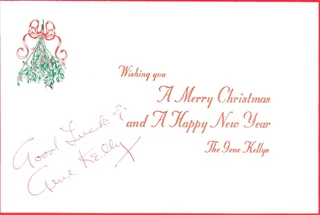 Wishing you
A Merry Christmas
and A Happy New Year
The Gene Kellys
Good Luck &
Gene Kelly